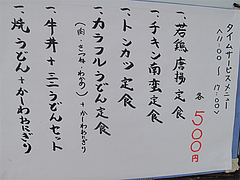 タイムサービスメニュー
(11:00 〜 17:00)
各 500円
一、若鶏唐揚定食
一、チキン南蛮定食
一、トンカツ定食
一、カラフルうどん定食
(肉・さつま・わかめ) +かーわおにぎり
一、牛丼+ミニうどんセット
一、焼うどん+かーわおにぎり